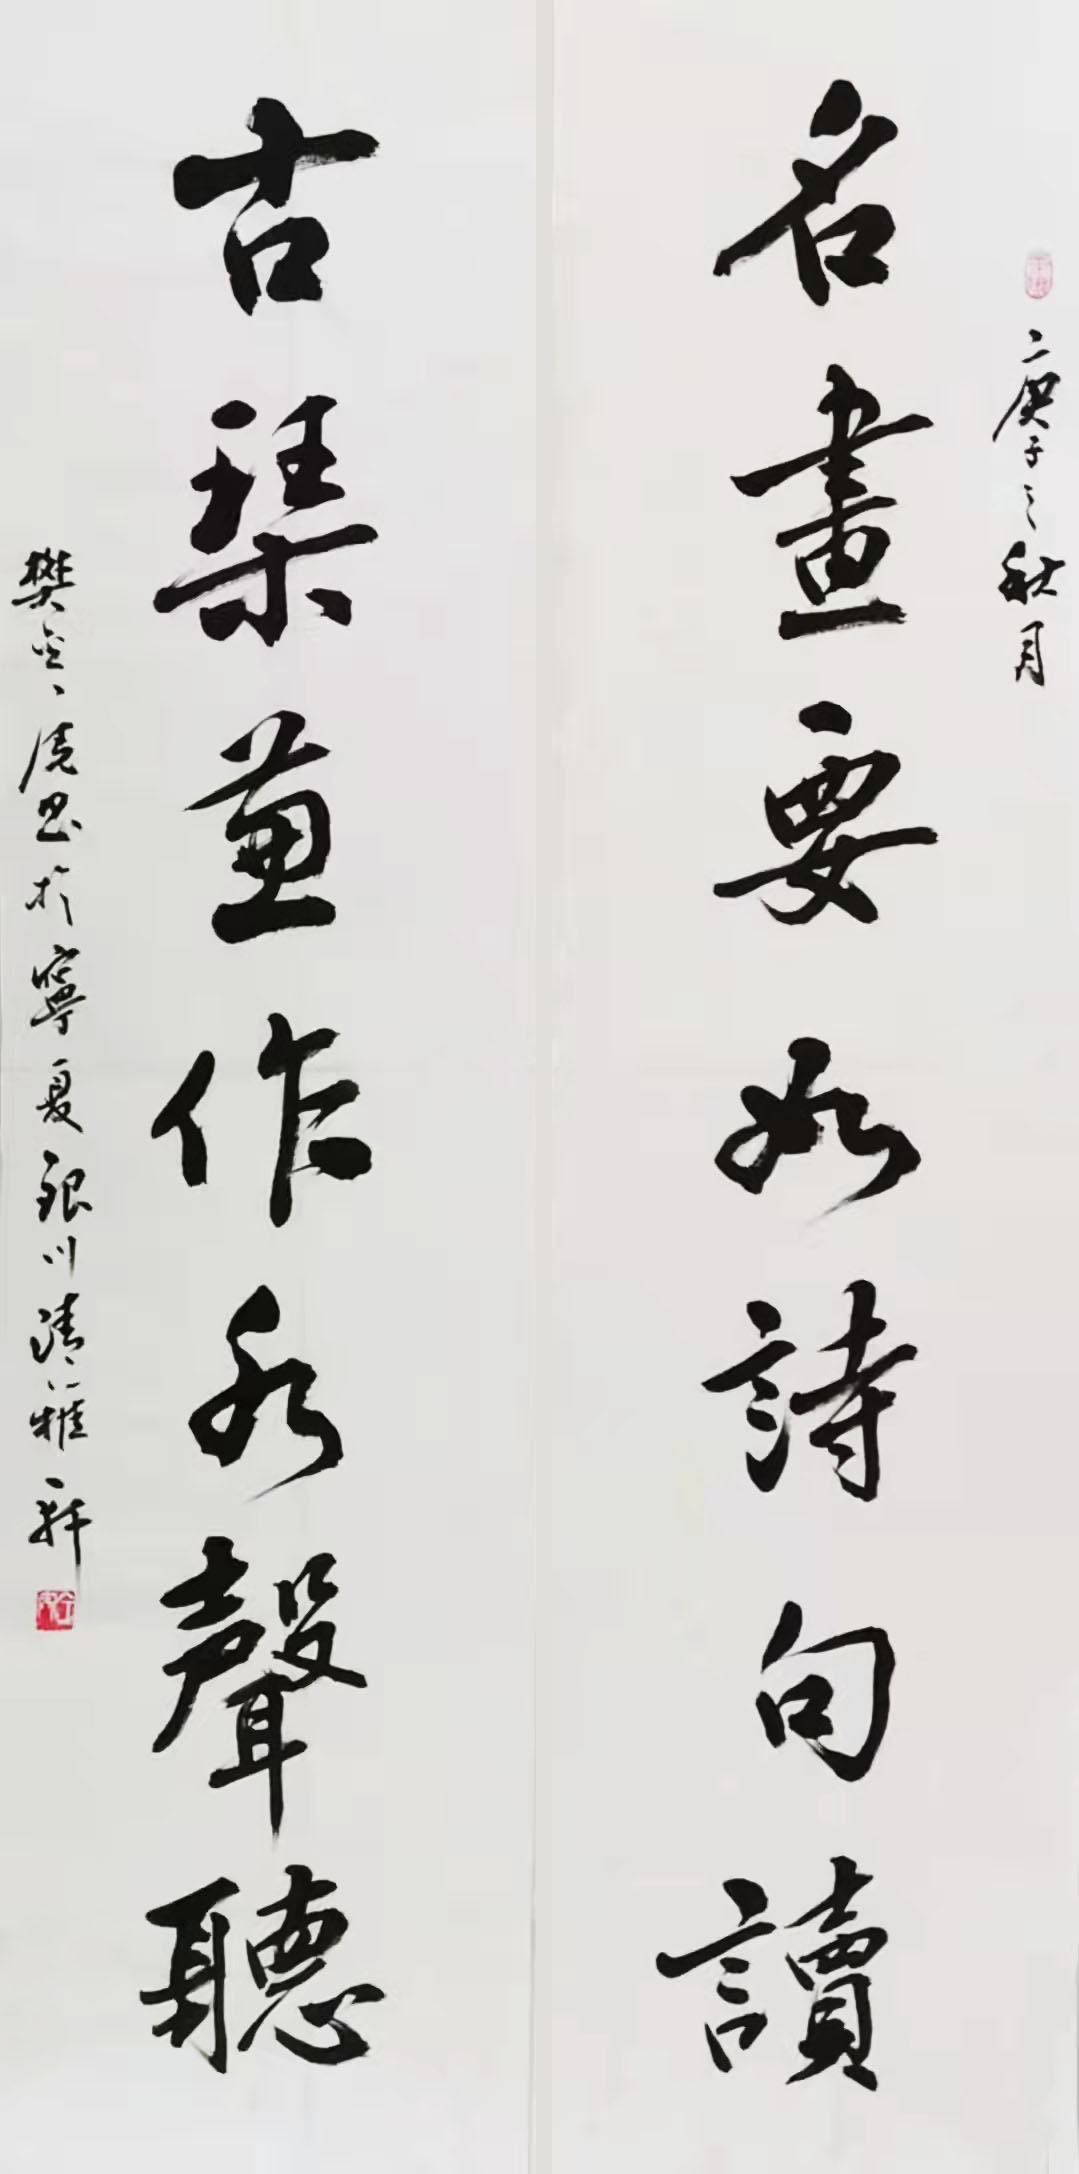 庚子之秋月
名畫要如詩句讀
古琴兼作水聲聽
樊
書於寧夏銀川清雅軒